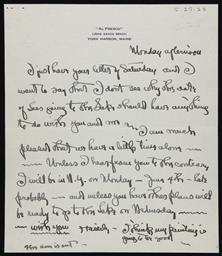 5-29-23
"AL FRESCO"
LONG SANDS BEACH
YORK HARBOR, MAINE
Monday afternoon
I just have your letter of Saturday and I
want to say that I don't see why the date
of Lee's going to the Lake should have anything
to do with you and me — I am much
pleased that we have a little time alone —
Unless I hear from you to the contrary
I will be in N.Y. on Monday — June 4th — late
probably — and unless you have other plans will
be ready to go to the Lake on Wednesday —
with you
I think my painting is
going to be good